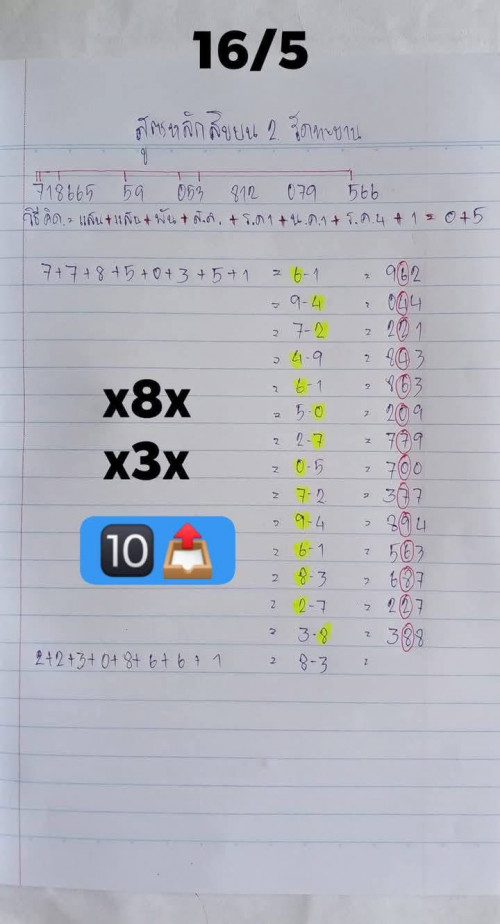 16/5
สูตรหลักสิบบน 2 วัดทะยาน
718665 59 053 812 079 566
วิธีคิด = แสน + แสน + พัน +
+ ร.ท1 + น.ท.1 + ร.ท.4 + 1 = 0+5
7+7+8+5+0+3+5+1 = 6-1 = 962
= 9-4 = 044
= 7-2 = 221
= 4-9 = 843
= 6-1 = 853
= 5-0 = 209
= 2-7 = 779
= 0-5 = 700
= 7-2 = 377
= 9-4 = 894
= 6-1 = 563
= 8-3 = 687
= 2-7 = 227
= 3-8 = 388
2+2+3+0+8+6+6+1 = 8-3 =
x8x
x3x
10